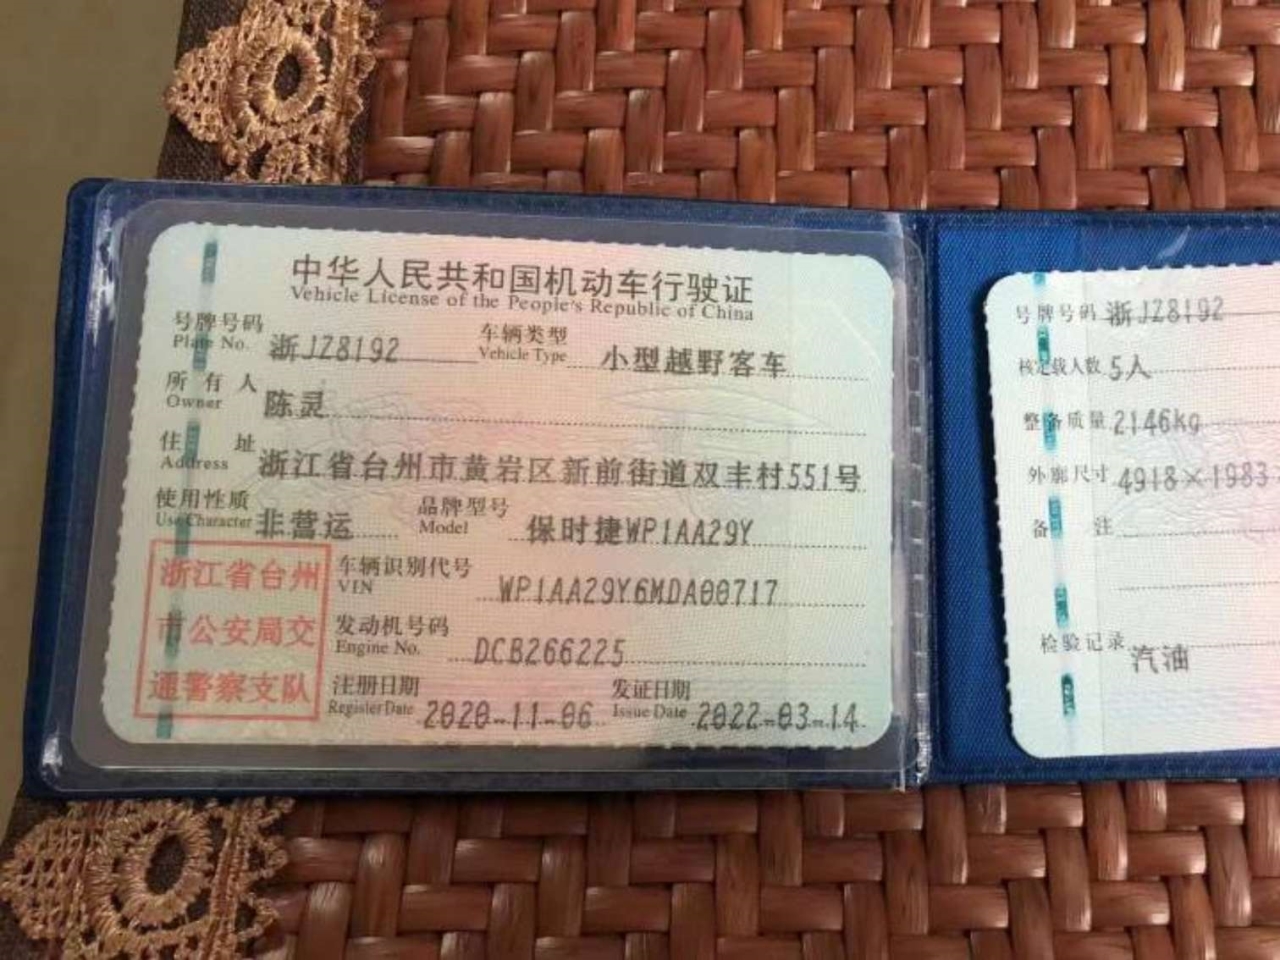 中华人民共和国机动车行驶证
Vehicle License of the People's Republic of China
号牌号码 浙JZ8192 车辆类型 小型越野客车
Plate No. Vehicle Type
所有人 陈灵
Owner
住址 浙江省台州市黄岩区新前街道双丰村551号
Address
使用性质 非营运 品牌型号 保时捷WP1AA29Y
Use Character Model
浙江省台州
市公安局交
通警察支队
车辆识别代号 WP1AA29Y6MDA00717
VIN
发动机号码 DCB266225
Engine No.
注册日期 2020-11-06 发证日期 2022-03-14
Register Date Issue Date
号牌号码 浙JZ8192
核定载人数 5人
整备质量 2146kg
外廓尺寸 4918×1983
备注
检验记录 汽油